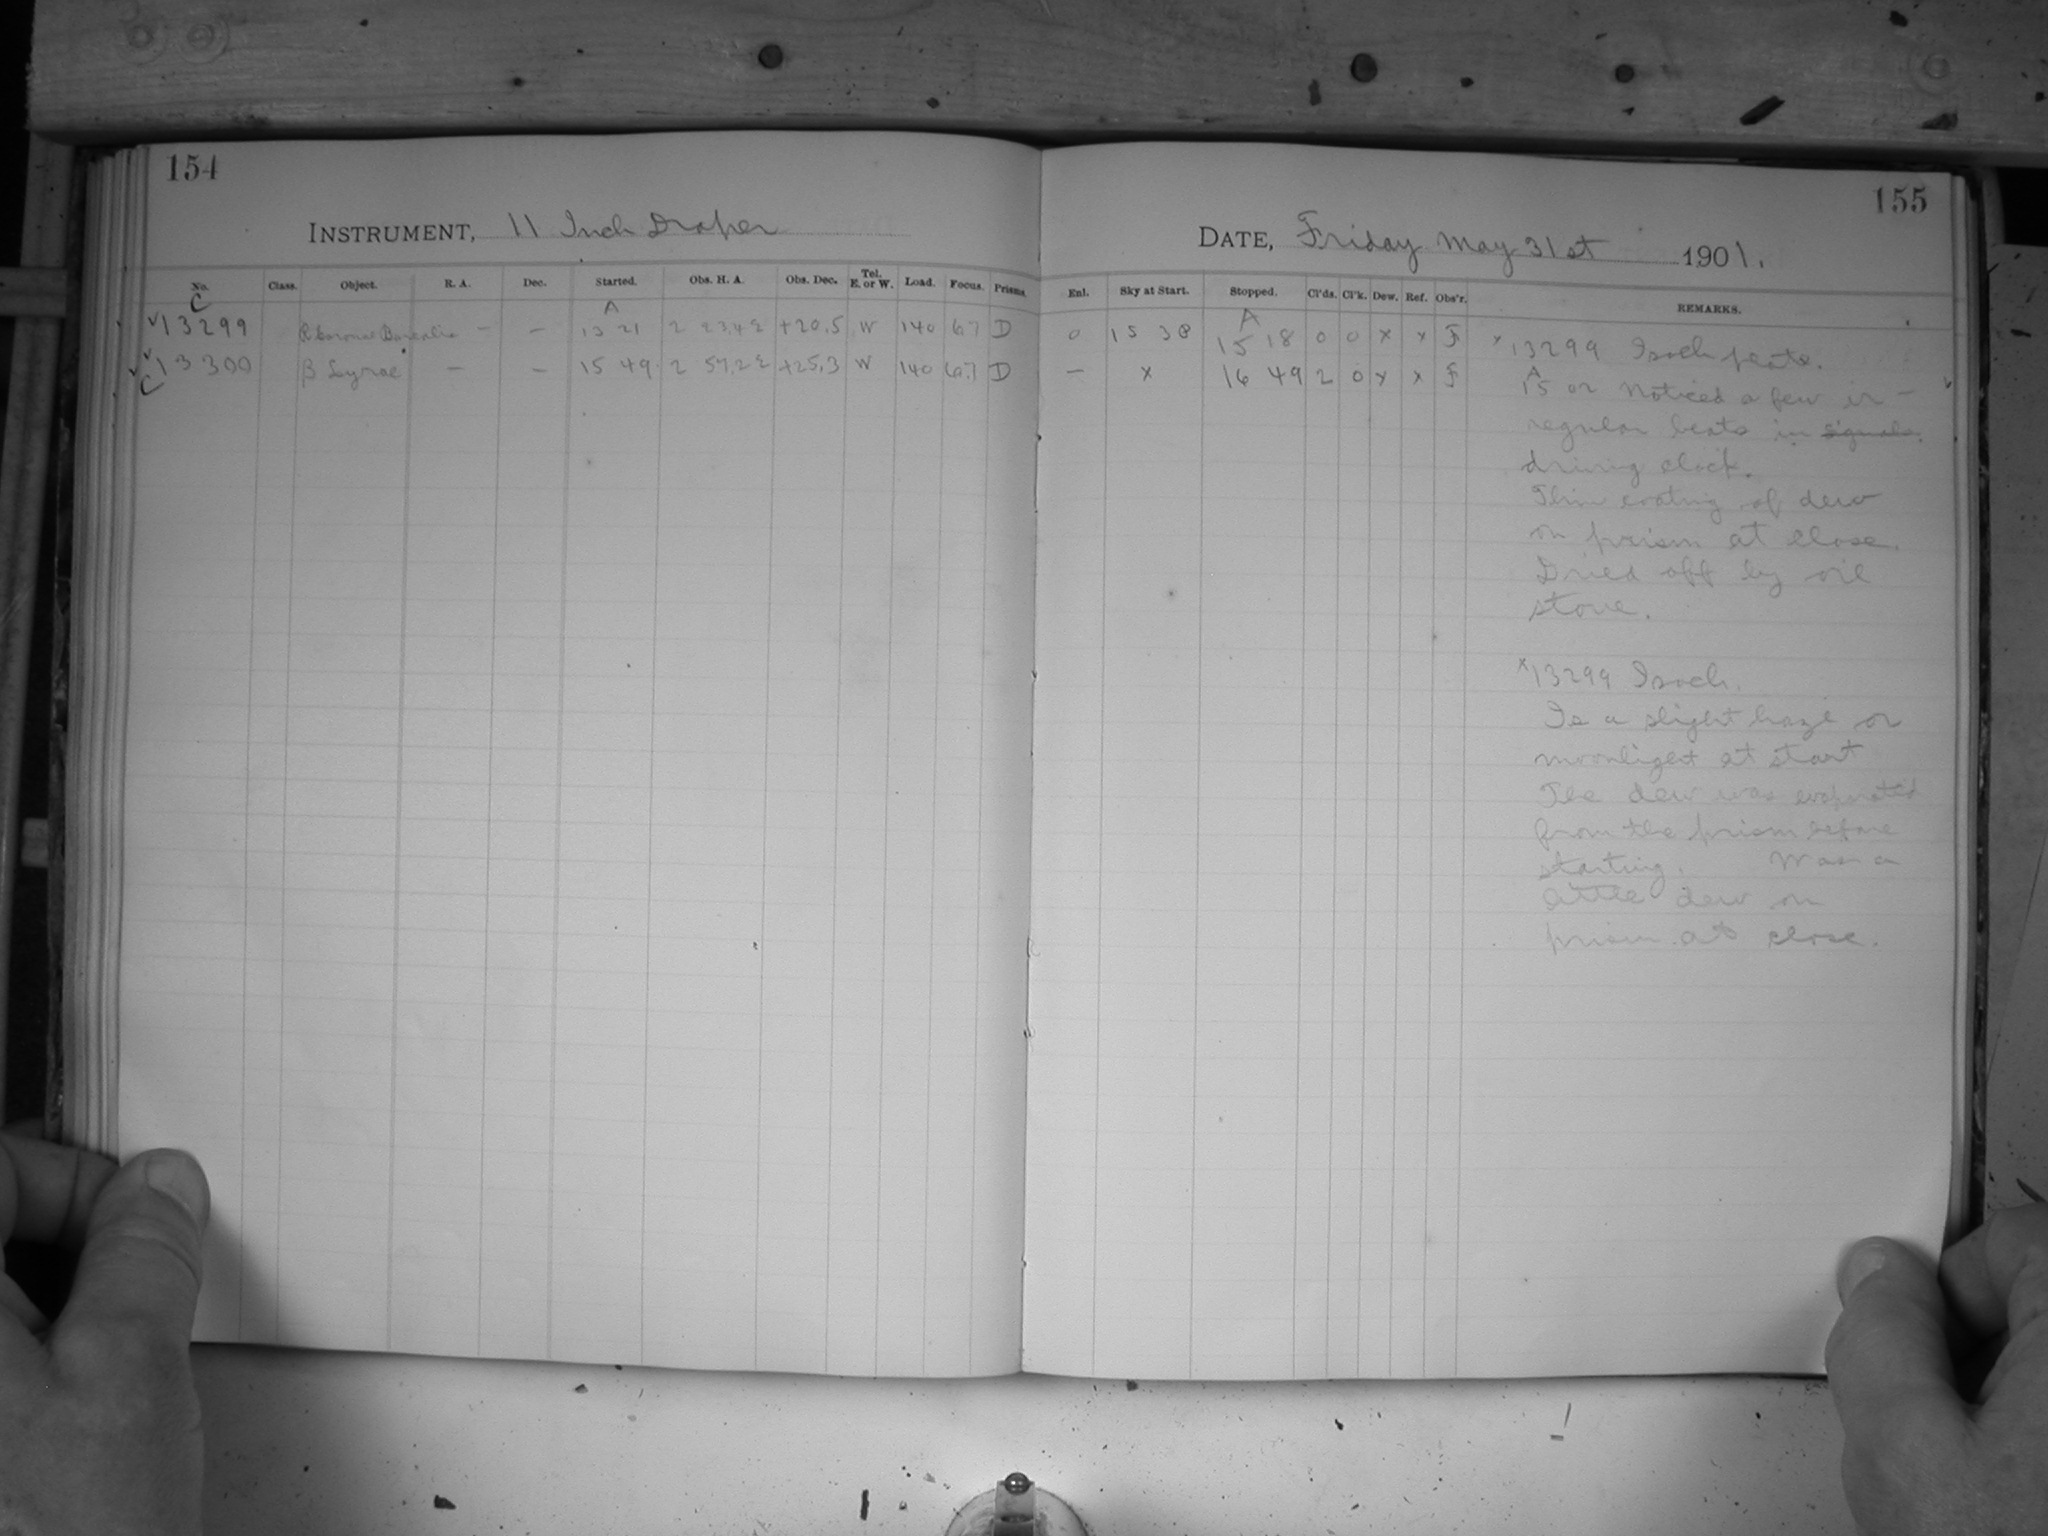 154
155
INSTRUMENT, 11 Inch Draper
DATE, Friday May 31st 1901.
No. Class. Object. R. A. Dec. Started. Obs. H. A. Obs. Dec. Tel. E. or W. Load. Focus. Prisms. Enl. Sky at Start. Stopped. Cl'ds. Cl'k. Dew. Ref. Obs'r. REMARKS.
C A A
√13299 R Coronae Borealis — — 13 21 2 23,4 E +20,5 W 140 6.7 D 0 15 38 15 18 0 0 x x F
√13300 β Lyrae — — 15 49 2 57,2 E +25,3 W 140 6.7 D — x 16 49 2 0 x x F
C
x13299 Isoch
A
15 02 Noticed a few ir-
regular beats in signals.
driving clock.
Thin coating of dew
on prism at close.
Dried off by oil
stove.
x13299 Isoch.
Is a slight haze or
moonlight at start
The dew was evaporated
from the prism before
starting. Was a
little dew on
prism at close.